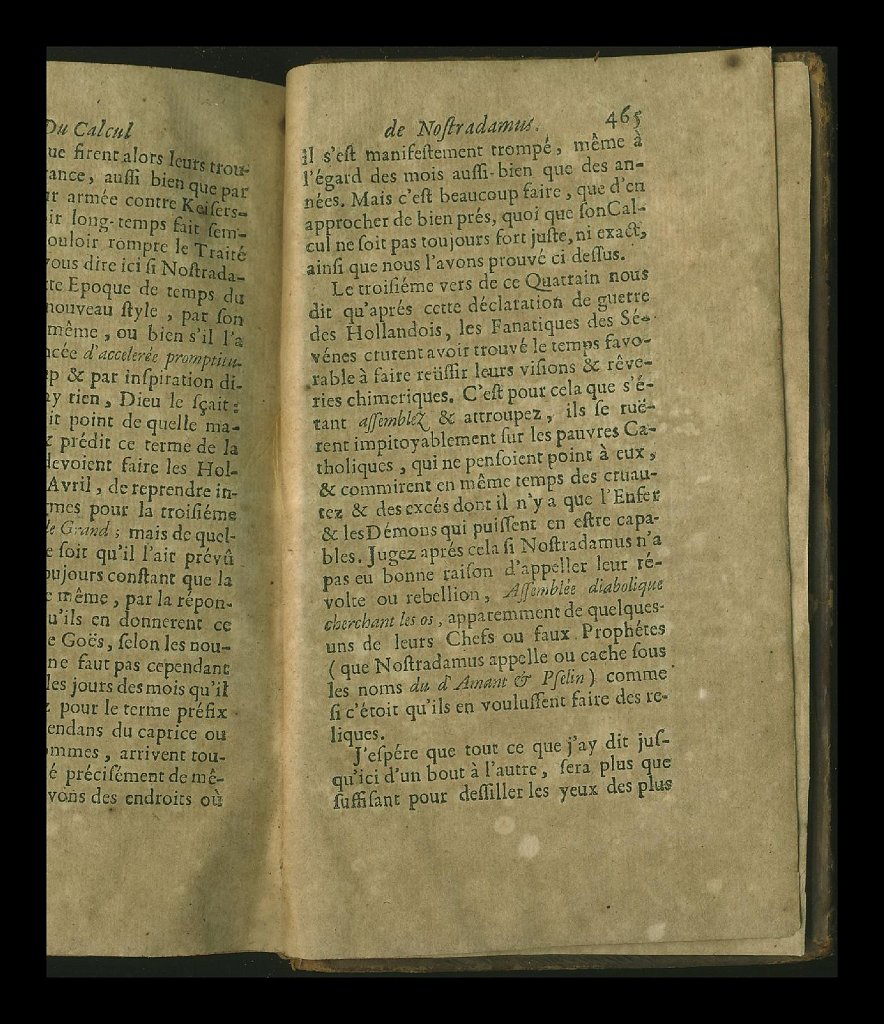 Du Calcul
ue firent alors leurs trou-
rance, auſſi bien que par
ır armée contre Keiſers-
ir long-temps fait ſem-
ouloir rompre le Traité
vous dire ici ſi Noſtrada-
te Epoque de temps du
nouveau ſtyle, par ſon
même, ou bien s'il l'a
ncée d'accelerée promptitu-
p & par inſpiration di-
ay rien, Dieu le ſçait:
it point de quelle ma-
prédit ce terme de la
devoient faire les Hol-
Avril, de reprendre in-
mes pour la troiſiéme
le Grand; mais de quel-
e ſoit qu'il l'ait prévû
oujours conſtant que la
e même, par la répon-
u'ils en donnerent ce
e Goës, ſelon les nou-
ne faut pas cependant
les jours des mois qu'il
pour le terme préfix
endans du caprice ou
ommes, arrivent tou-
é préciſément de mê-
vons des endroits où
de Noſtradamus. 465
il s'eſt manifeſtement trompé, même à
l'égard des mois auſſi-bien que des an-
nées. Mais c'eſt beaucoup faire, que d'en
approcher de bien prés, quoi que ſonCal-
cul ne ſoit pas toujours fort juſte, ni exact,
ainſi que nous l'avons prouvé ci deſſus.
Le troiſiéme vers de ce Quatrain nous
dit qu'aprés cette déclaration de guerre
des Hollandois, les Fanatiques des Sé-
vénes crurent avoir trouvé le temps favo-
rable à faire reüſſir leurs viſions & rêve-
ries chimeriques. C'eſt pour cela que s'é-
tant aſſemblez & attroupez, ils ſe ruë-
rent impitoyablement ſur les pauvres Ca-
tholiques, qui ne penſoient point à eux,
& commirent en même temps des cruau-
tez & des excés dont il n'y a que l'Enfer
& lesDémons qui puiſſent en eſtre capa-
bles. Jugez aprés cela ſi Noſtradamus n'a
pas eu bonne raiſon d'appeller leur ré-
volte ou rebellion, Aſſemblée diabolique
cherchant les os, apparemment de quelques-
uns de leurs Chefs ou faux Prophétes
(que Noſtradamus appelle ou cache ſous
les noms du d'Amant & Pſelin) comme
ſi c'étoit qu'ils en vouluſſent faire des re-
liques.
J'eſpére que tout ce que j'ay dit juſ-
qu'ici d'un bout à l'autre, ſera plus que
ſuffiſant pour deſſiller les yeux des plus